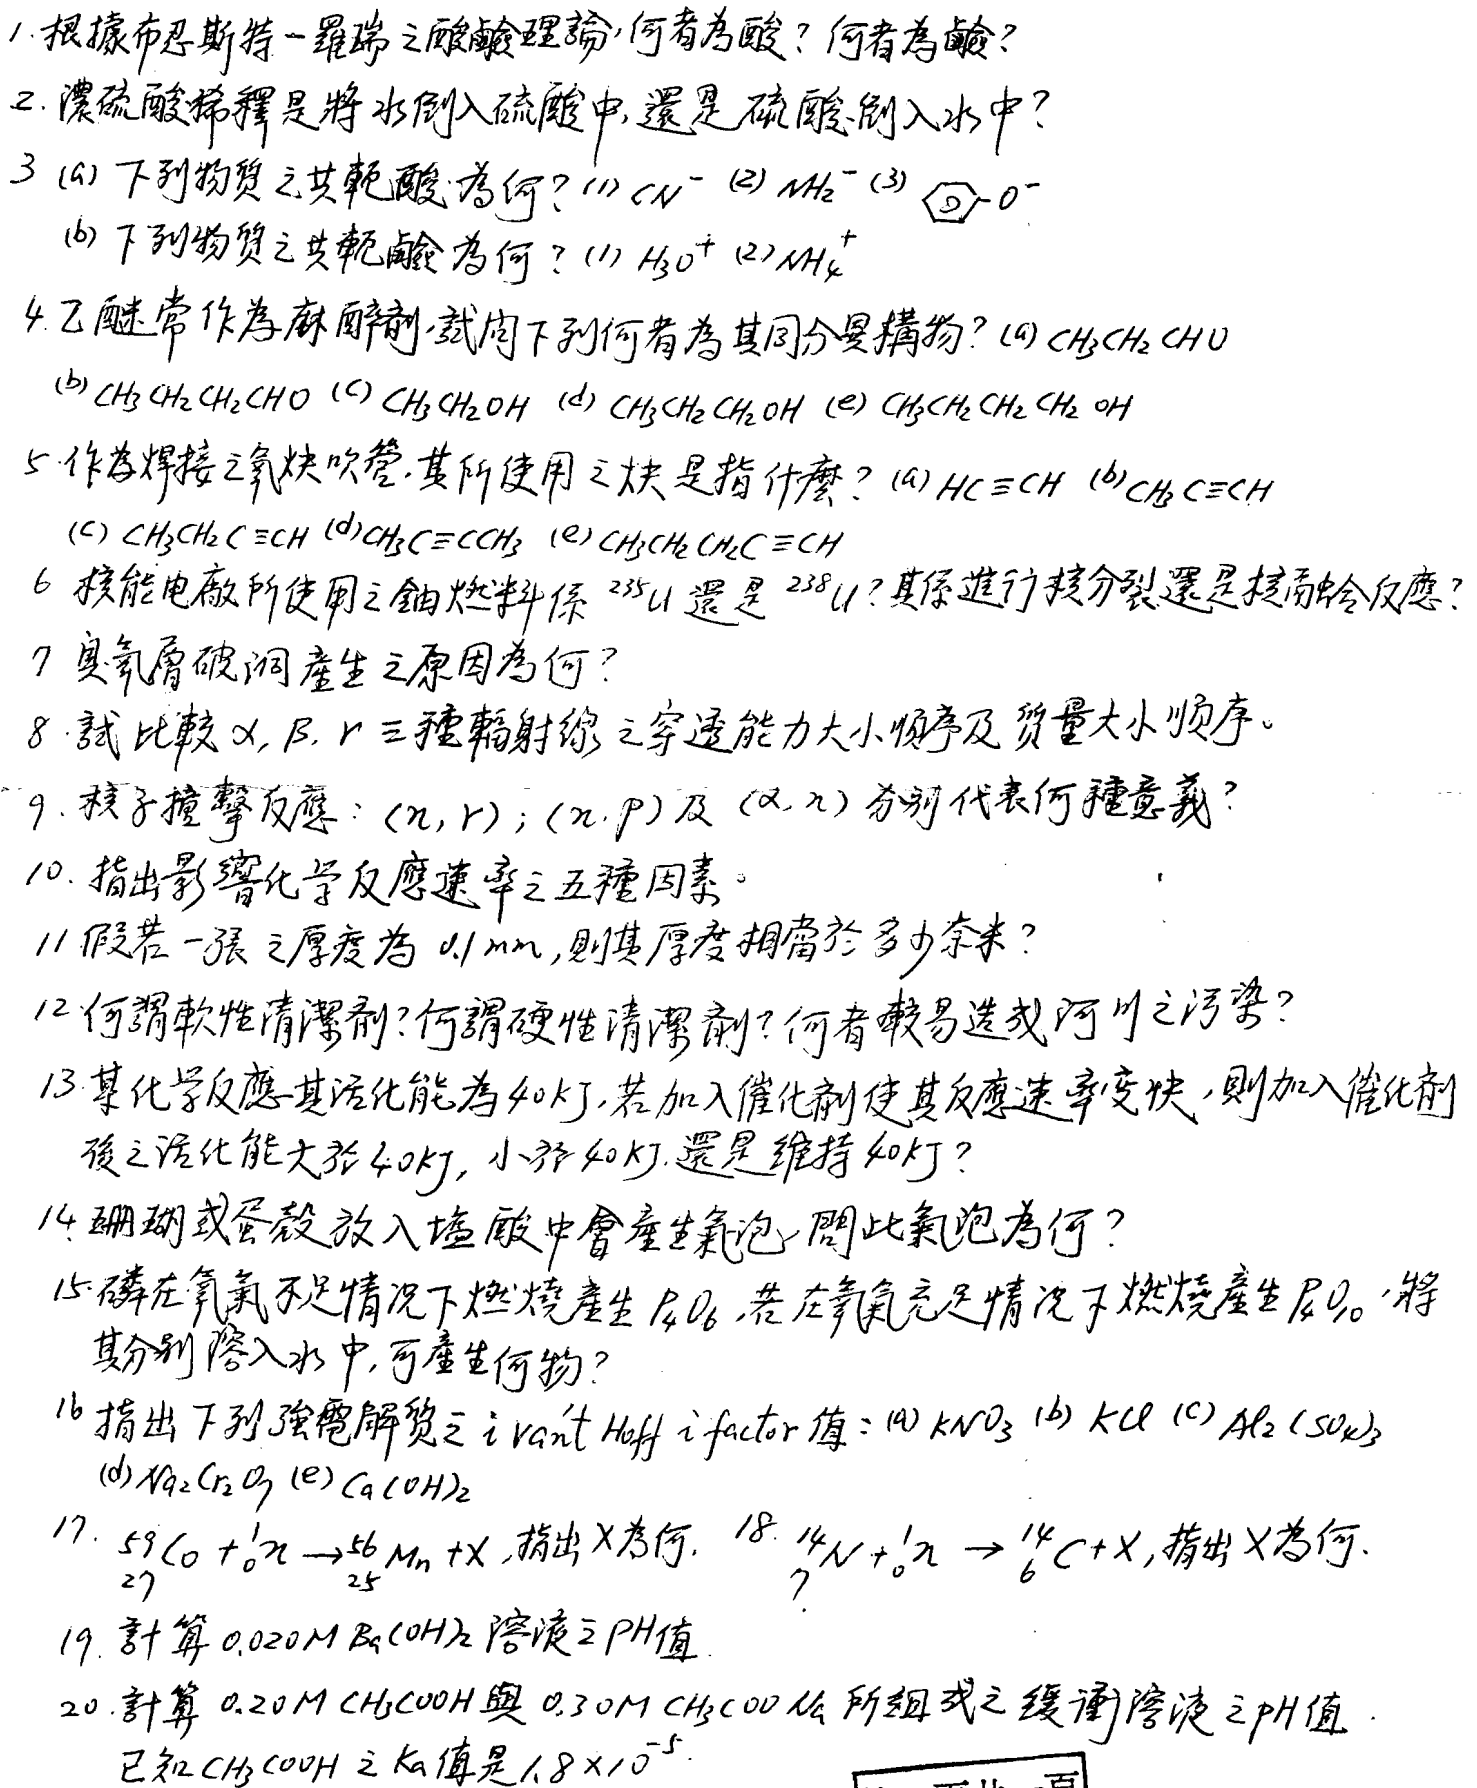 1. 根據布忍斯特-羅瑞之酸鹼理論,何者為酸? 何者為鹼?
2. 濃硫酸稀釋是將水倒入硫酸中,還是硫酸倒入水中?
3 (a) 下列物質之共軛酸為何? (1) CN⁻ (2) NH₂⁻ (3) -O⁻
(b) 下列物質之共軛鹼為何? (1) H₃O⁺ (2) NH₄⁺
4. 乙醚常作為麻醉劑,試問下列何者為其同分異構物? (a) CH₃CH₂CHO
(b) CH₃CH₂CH₂CHO (c) CH₃CH₂OH (d) CH₃CH₂CH₂OH (e) CH₃CH₂CH₂CH₂OH
5. 作為焊接之氧炔吹管,其所使用之炔是指什麼? (a) HC≡CH (b) CH₃C≡CH
(c) CH₃CH₂C≡CH (d) CH₃C≡CCH₃ (e) CH₃CH₂CH₂C≡CH
6 核能电廠所使用之鈾燃料係 ²³⁵U 還是 ²³⁸U? 其係進行核分裂還是核融合反應?
7 臭氧層破洞產生之原因為何?
8. 試比較 α, β, γ 三種輻射線之穿透能力大小順序及質量大小順序。
9. 核子撞擊反應: (n, γ); (n, p) 及 (α, n) 分別代表何種意義?
10. 指出影響化学反應速率之五種因素。
11 假若一張之厚度為 0.1mm, 則其厚度相當於多少奈米?
12. 何謂軟性清潔劑? 何謂硬性清潔劑? 何者較易造成河川之污染?
13. 某化学反應其活化能為40KJ, 若加入催化劑使其反應速率变快, 則加入催化劑
後之活化能大於40KJ, 小於40KJ, 還是維持40KJ?
14. 珊瑚或蛋殼放入塩酸中會產生氣泡, 問此氣泡為何?
15. 磷在氧氣不足情況下燃燒產生 P₄O₆, 若在氧氣充足情況下燃燒產生 P₄O₁₀, 將
其分別溶入水中, 可產生何物?
16 指出下列強電解質之 i van't Hoff i factor 值: (a) KNO₃ (b) KCl (c) Al₂(SO₄)₃
(d) Na₂Cr₂O₇ (e) Ca(OH)₂
17. ⁵⁹₂₇Co + ¹₀n → ⁵⁶₂₅Mn + X, 指出X為何. 18. ¹⁴₇N + ¹₀n → ¹⁴₆C + X, 指出X為何.
19. 計算 0.020M Ba(OH)₂ 溶液之PH值.
20. 計算 0.20M CH₃COOH 與 0.30M CH₃COONa 所組成之緩衝溶液之pH值.
已知 CH₃COOH 之 Ka 值是 1.8×10⁻⁵.